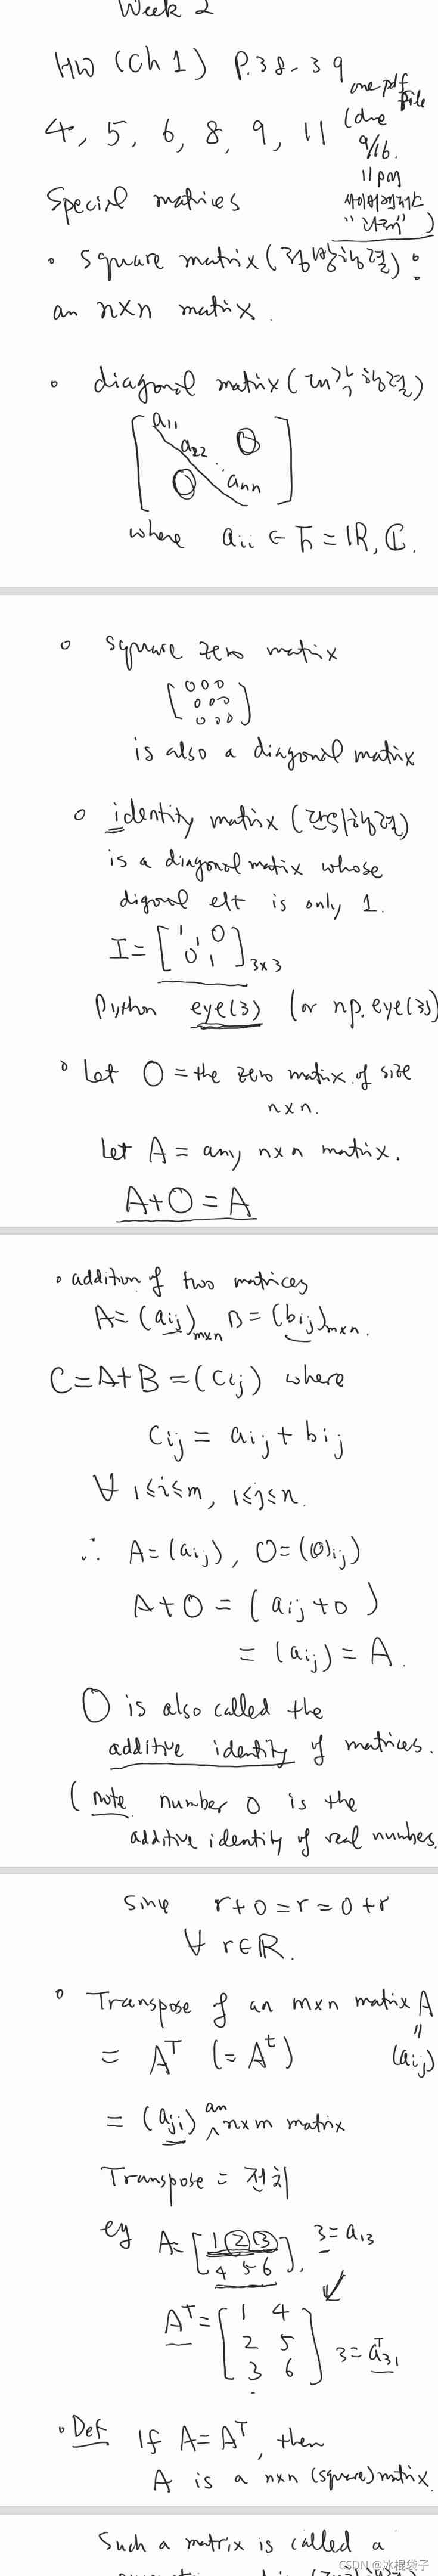 Week 2
HW (Ch 1) P.38-39
one pdf file
4, 5, 6, 8, 9, 11
(due
9/16.
11pm
사이버캠퍼스
" ")
Special matrices
• square matrix (정방행렬) :
an n×n matrix.
• diagonal matrix (대각행렬)
[ a11
a22 0
0 ann ]
where aii ∈ F = R, C.
• square zero matrix
[ 0 0 0
0 0 0
0 0 0 ]
is also a diagonal matrix
• identity matrix (단위행렬)
is a diagonal matrix whose
digonal elt is only 1.
I = [ 1 1 0
0 1 ] 3×3
Python eye(3) (or np.eye(3))
• Let O = the zero matrix of size
n×n.
Let A = any n×n matrix.
A+O = A
• addition of two matrices
A = (aij)m×n B = (bij)m×n.
C = A+B = (Cij) where
Cij = aij + bij
∀ 1≤i≤m, 1≤j≤n.
∴ A = (aij), O = (0)ij)
A+O = (aij+0)
= (aij) = A.
O is also called the
additive identity of matrices.
(note number 0 is the
additive identity of real numbes.
Sine r+0 = r = 0+r
∀ r∈R.
• Transpose of an m×n matrix A
= Aᵀ (= Aᵗ)
"
(aij)
= (aji) an n×m matrix
Transpose = 전치
eg A = [ 1 2 3
4 5 6 ]. 3 = a13
Aᵀ = [ 1 4
2 5
3 6 ] 3 = aᵀ31
• Def If A = Aᵀ, then
A is a n×n (square) matrix.
Such a matrix is called a
CSDN @冰棍袋子